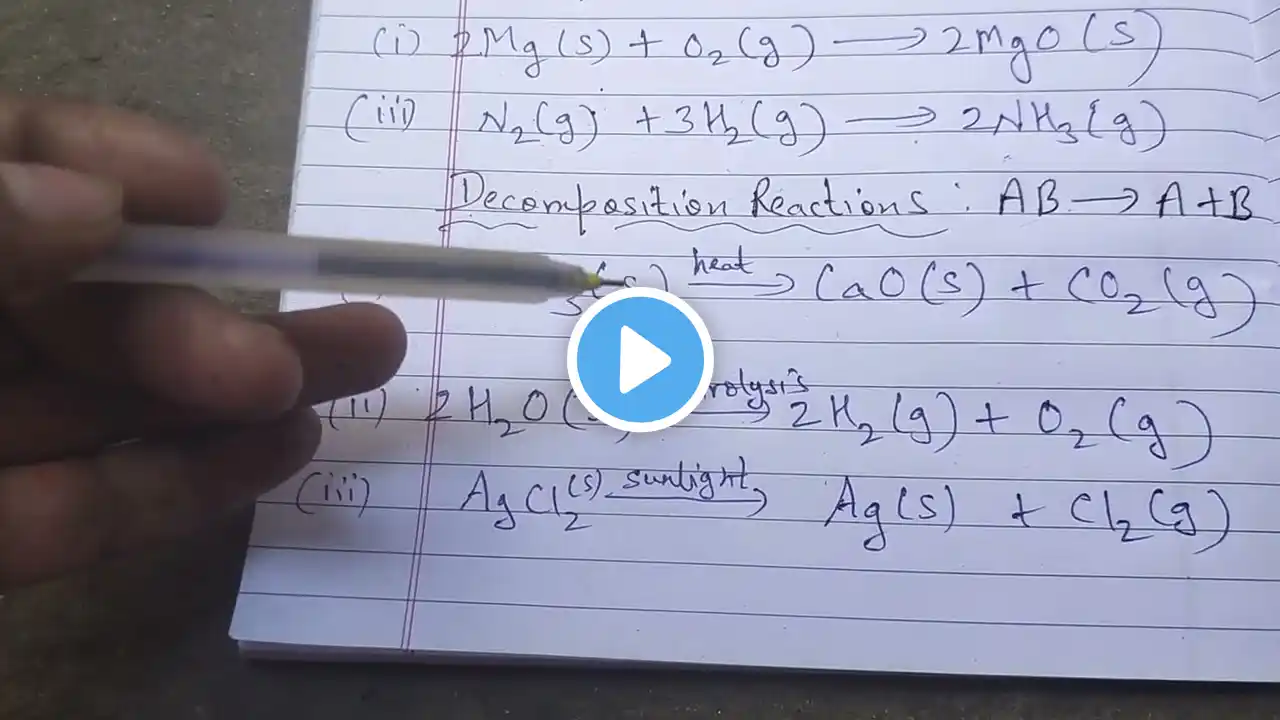 (i) 2Mg(s) + O₂(g) ⟶ 2MgO(s)
(iii) N₂(g) + 3H₂(g) ⟶ 2NH₃(g)
Decomposition Reactions : AB ⟶ A + B
₃(s) heat ⟶ CaO(s) + CO₂(g)
(ii) 2H₂O( rolysis ⟶ 2H₂(g) + O₂(g)
(iii) AgCl₂(s) sunlight ⟶ Ag(s) + Cl₂(g)